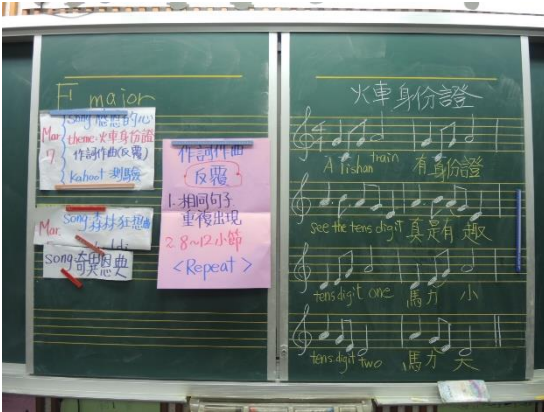 F major
Mar. 7
Song 感恩的心
theme:火車身份證
作詞作曲(反覆)
Kahoot 測驗
Mar.
Song 森林狂想曲
song 奇異恩典
作詞作曲
反覆
1. 相同句子
重複出現
2. 8~12小節
<Repeat>
火車身份證
Alishan train 有身份證
see the tens digit 真是有趣
tens digit one 馬力 小
tens digit two 馬力 大